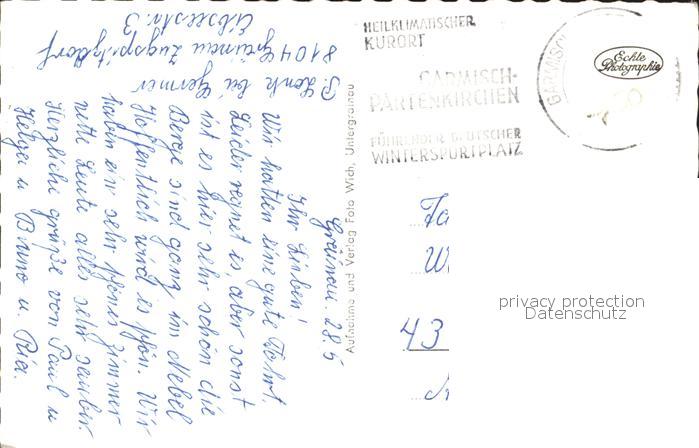 P. Lenk bei Germer
8104 Grainau Zugspitzdorf
Eibseestr. 3
Grainau. 28.5
Ihr Lieben!
Wir hatten eine gute Fahrt.
Leider regnet es, aber sonst
ist es hier sehr schön die
Berge sind ganz im Nebel
Hoffentlich wird es schön. Wir
haben ein sehr schönes Zimmer
nette Leute alles sehr sauber.
Herzliche Grüße von Paul u
Helga u Bruno u. Ria.
Aufnahme und Verlag Foto Wich, Untergrainau
HEILKLIMATISCHER
KURORT
GARMISCH-
PARTENKIRCHEN
FÜHRENDER DEUTSCHER
WINTERSPORTPLATZ
GARMISC
Echte
Photographie
Fa
W
43
privacy protection
Datenschutz